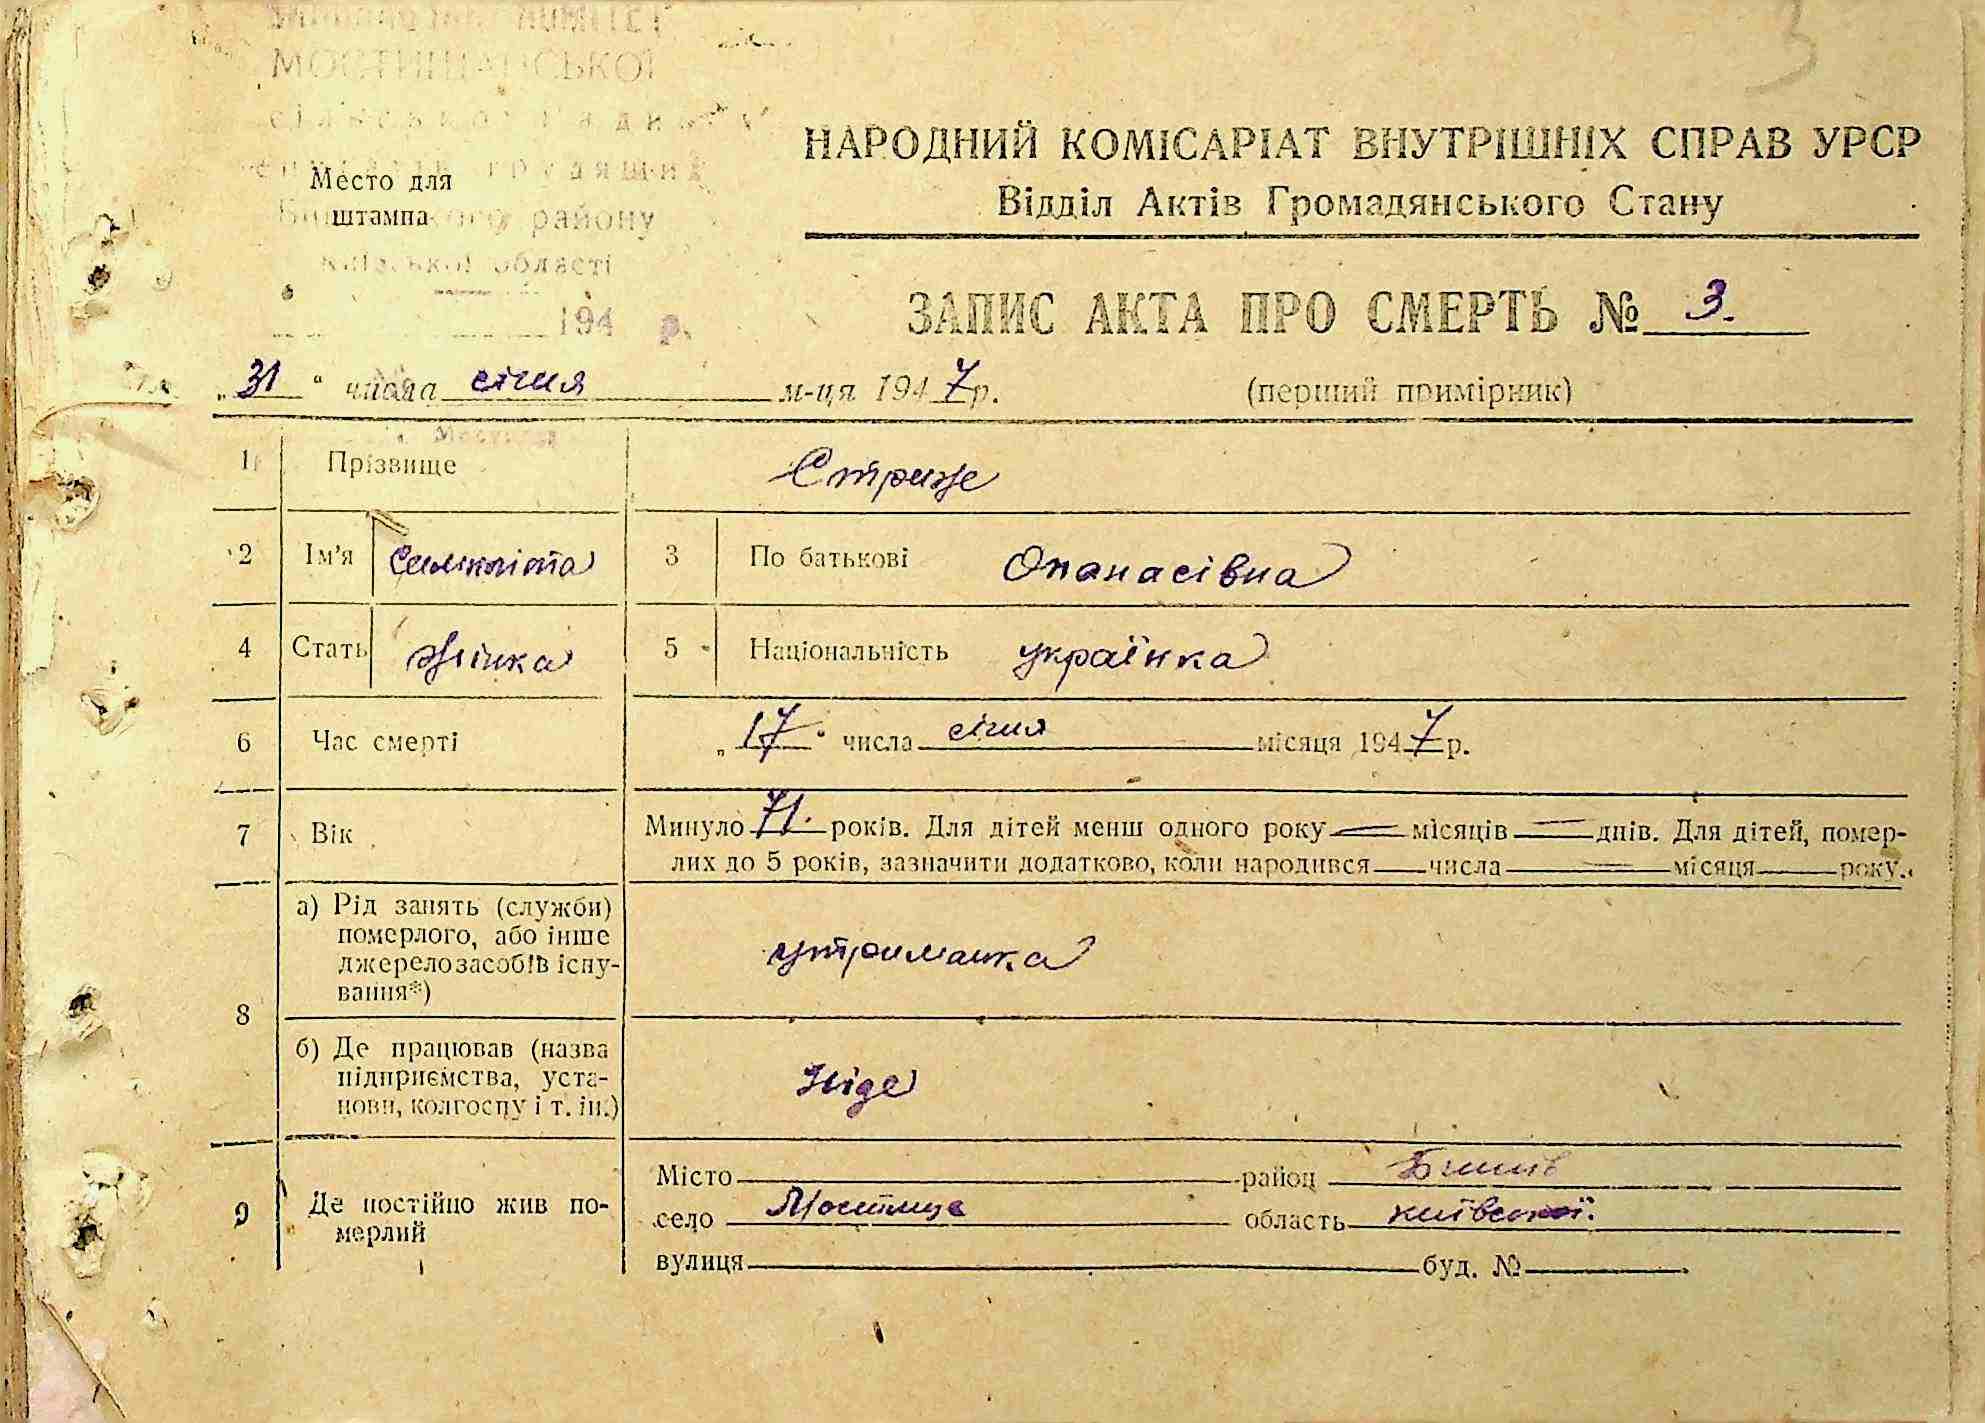 3
МОСТИЩАНСЬКОЇ
району
Київської області
194 р.
Место для
штампа
НАРОДНИЙ КОМІСАРІАТ ВНУТРІШНІХ СПРАВ УРСР
Відділ Актів Громадянського Стану
ЗАПИС АКТА ПРО СМЕРТЬ № 3.
„31“ числа січня м-ця 1947р. (перший примірник)
1 Прізвище
2 Ім'я 3 По батькові Опанасівна
4 Стать жінка 5 Національність українка
6 Час смерті „17“ числа січня місяця 1947р.
7 Вік Минуло 71. років. Для дітей менш одного року — місяців — днів. Для дітей, помер-
лих до 5 років, зазначити додатково, коли народився числа місяця року.
8 а) Рід занять (служби)
померлого, або інше
джерело засобів існу-
вання*) утриманка
б) Де працював (назва
підприємства, уста-
нови, колгоспу і т. ін.) Ніде
9 Де постійно жив по-
мерлий
Місто район
село Мостище область київської.
вулиця буд. №